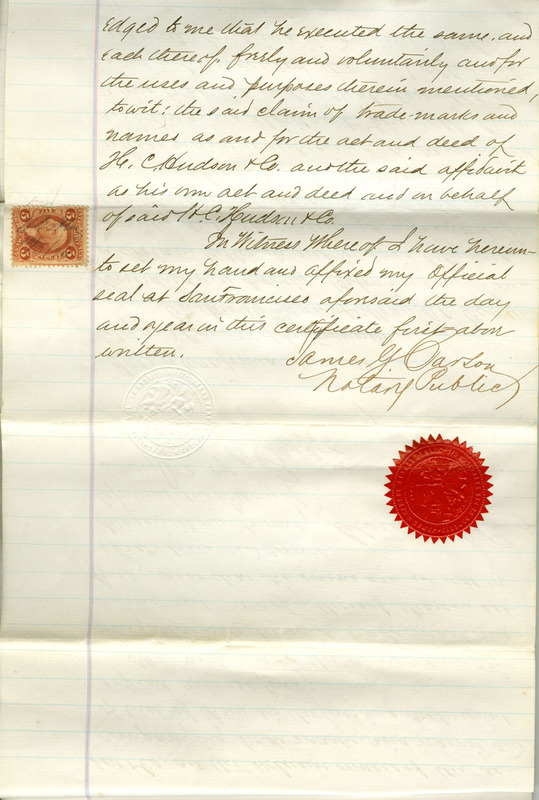 edged to me that he executed the same, and
each thereof, freely and voluntarily and for
the uses and purposes therein mentioned,
towit: the said claim of trade-marks and
names as and for the act and deed of
H. C. Hudson & Co. and the said affidavit
as his own act and deed and on behalf
of said H. C. Hudson & Co.
In Witness Whereof I have hereun-
to set my hand and affixed my Official
seal at San Francisco aforesaid the day
and year in this certificate first above
written.
James G. Carson
Notary Public
5
5